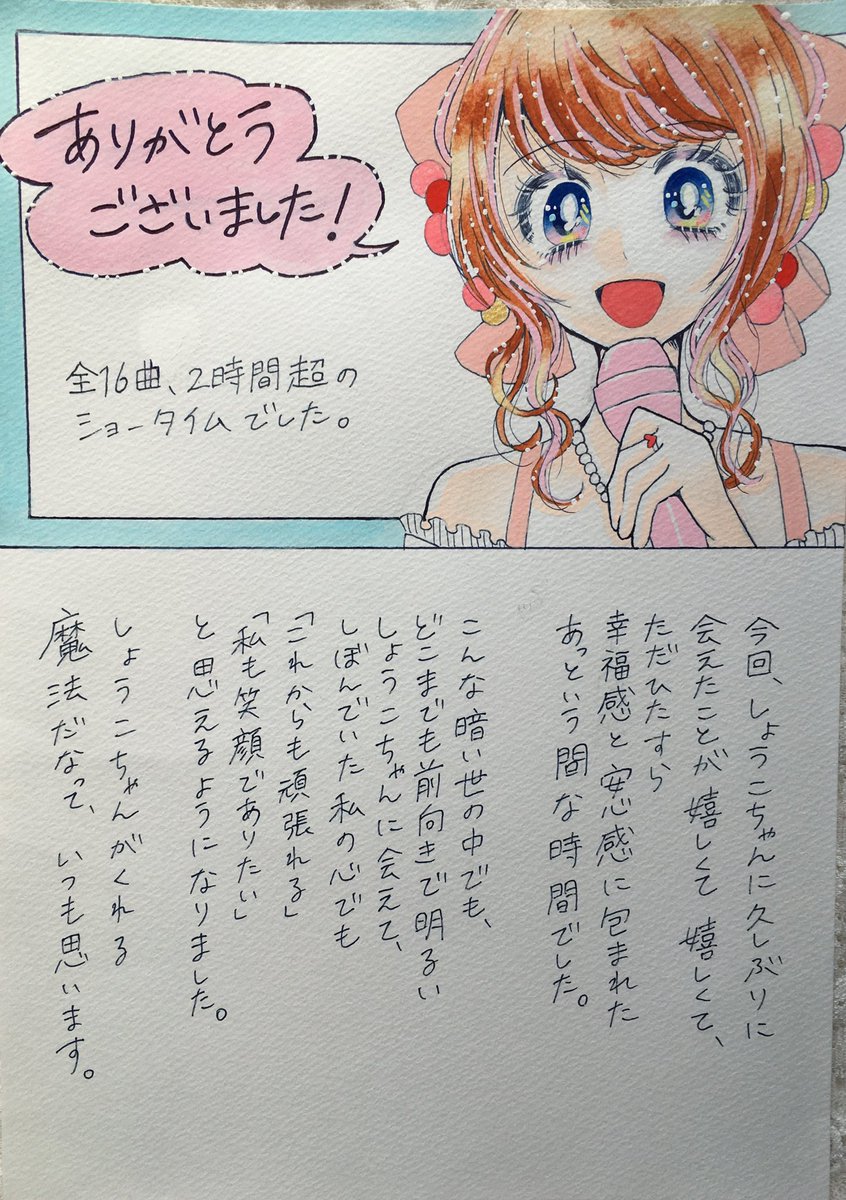 ありがとう
ございました!
全16曲、2時間超の
ショータイムでした。
今回、しょうこちゃんに久しぶりに
会えたことが嬉しくて嬉しくて、
ただひたすら
幸福感と安心感に包まれた
あっという間な時間でした。
こんな暗い世の中でも、
どこまでも前向きで明るい
しょうこちゃんに会えて、
しぼんでいた私の心でも
「これからも頑張れる」
「私も笑顔でありたい」
と思えるようになりました。
しょうこちゃんがくれる
魔法だなって、いつも思います。